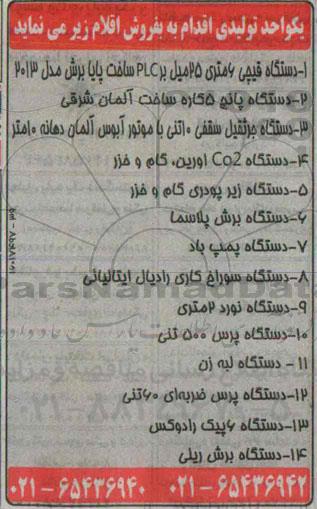 یکواحد تولیدی اقدام به بفروش اقلام زیر می نماید
۱-دستگاه قیچی ۶متری ۲۵میل بر PLC ساخت پایا برش مدل ۲۰۱۳
۲-دستگاه پانچ ۵کاره ساخت آلمان شرقی
۳-دستگاه جرثقیل سقفی ۱۰تنی با موتور آبوس آلمان دهانه ۱۰متر
۴-دستگاه Co2 اورین، گام و خزر
۵-دستگاه زیر پودری گام و خزر
۶-دستگاه برش پلاسما
۷-دستگاه پمپ باد
۸-دستگاه سوراخ کاری رادیال ایتالیائی
۹-دستگاه نورد ۲متری
۱۰-دستگاه پرس ۵۰۰ تنی
۱۱- دستگاه لبه زن
۱۲-دستگاه پرس ضربه‌ای ۶۰تنی
۱۳-دستگاه ۶پیک رادوکس
۱۴-دستگاه برش ریلی
۰۲۱-۶۵۴۳۶۹۴۰ ۰۲۱-۶۵۴۳۶۹۴۲
ParsNamadData